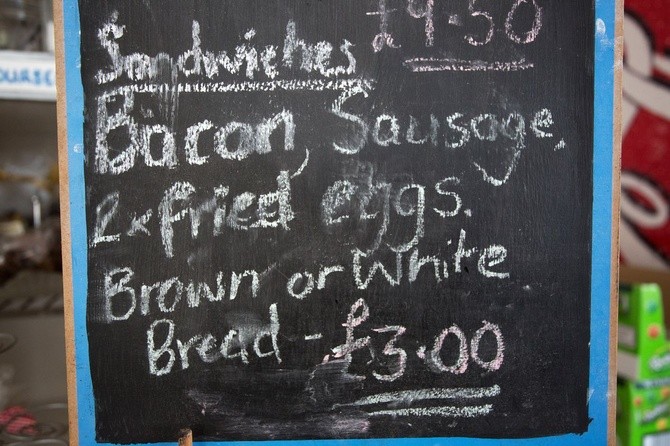 £9.50
Sandwiches
Bacon, Sausage,
2x fried eggs.
Brown or White
Bread - £3.00
OURSE